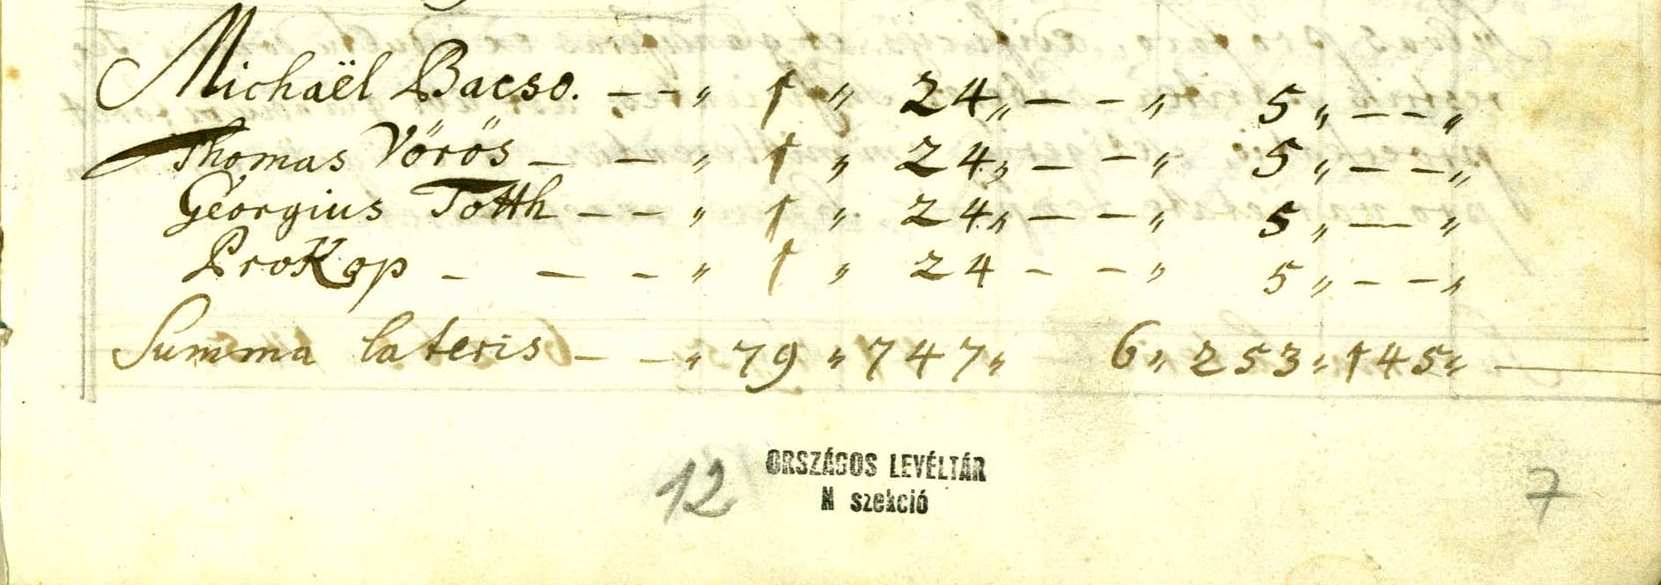 Michaël Bacso. – – „ 1 „ 24 „ – – „ 5 „ – – „
Thomas Vörös – – „ 1 „ 24 „ – – „ 5 „ – – „
Georgius Totth – – „ 1 „ 24 „ – – „ 5 „ – „
ProKop – – – „ 1 „ 24 – – „ 5 „ – – „
Summa lateris – – „ 79 „ 747 „ 6 „ 253 „ 145 „ –
ORSZÁGOS LEVÉLTÁR
12 N szekció 7